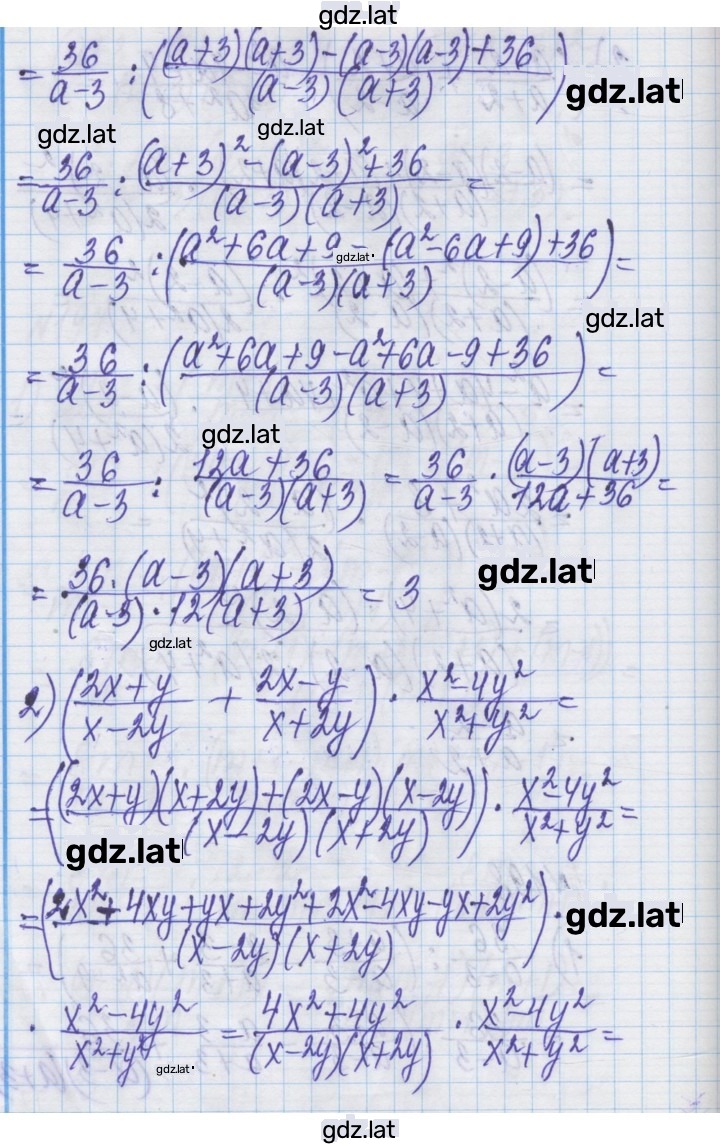 gdz.lat
= 36/(a-3) : (((a+3)(a+3)-(a-3)(a-3)+36)/((a-3)(a+3))) gdz.lat
gdz.lat gdz.lat
= 36/(a-3) : ((a+3)²-(a-3)²+36)/((a-3)(a+3)) =
= 36/(a-3) : ((a²+6a+9-(a²-6a+9)+36)/((a-3)(a+3))) =
gdz.lat
gdz.lat
= 36/(a-3) : ((a²+6a+9-a²+6a-9+36)/((a-3)(a+3))) =
gdz.lat
= 36/(a-3) : (12a+36)/((a-3)(a+3)) = 36/(a-3) · ((a-3)(a+3))/(12a+36) =
gdz.lat
= (36·(a-3)(a+3))/((a-3)·12(a+3)) = 3
gdz.lat
2) ((2x+y)/(x-2y) + (2x-y)/(x+2y)) · (x²-4y²)/(x²+y²) =
= (((2x+y)(x+2y)+(2x-y)(x-2y))/((x-2y)(x+2y))) · (x²-4y²)/(x²+y²) =
gdz.lat
= ((2x²+4xy+yx+2y²+2x²-4xy-yx+2y²)/((x-2y)(x+2y))) · gdz.lat
· (x²-4y²)/(x²+y²) = (4x²+4y²)/((x-2y)(x+2y)) · (x²-4y²)/(x²+y²) =
gdz.lat
gdz.lat